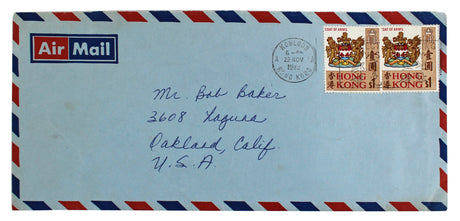 Air Mail
KOWLOON
29 NOV
HONG KONG
COAT OF ARMS
香港
壹圓
HONG
KONG $1
COAT OF ARMS
香港
壹圓
HONG
KONG $1
Mr. Bob Baker
3608 Laguna
Oakland, Calif.
U.S.A.